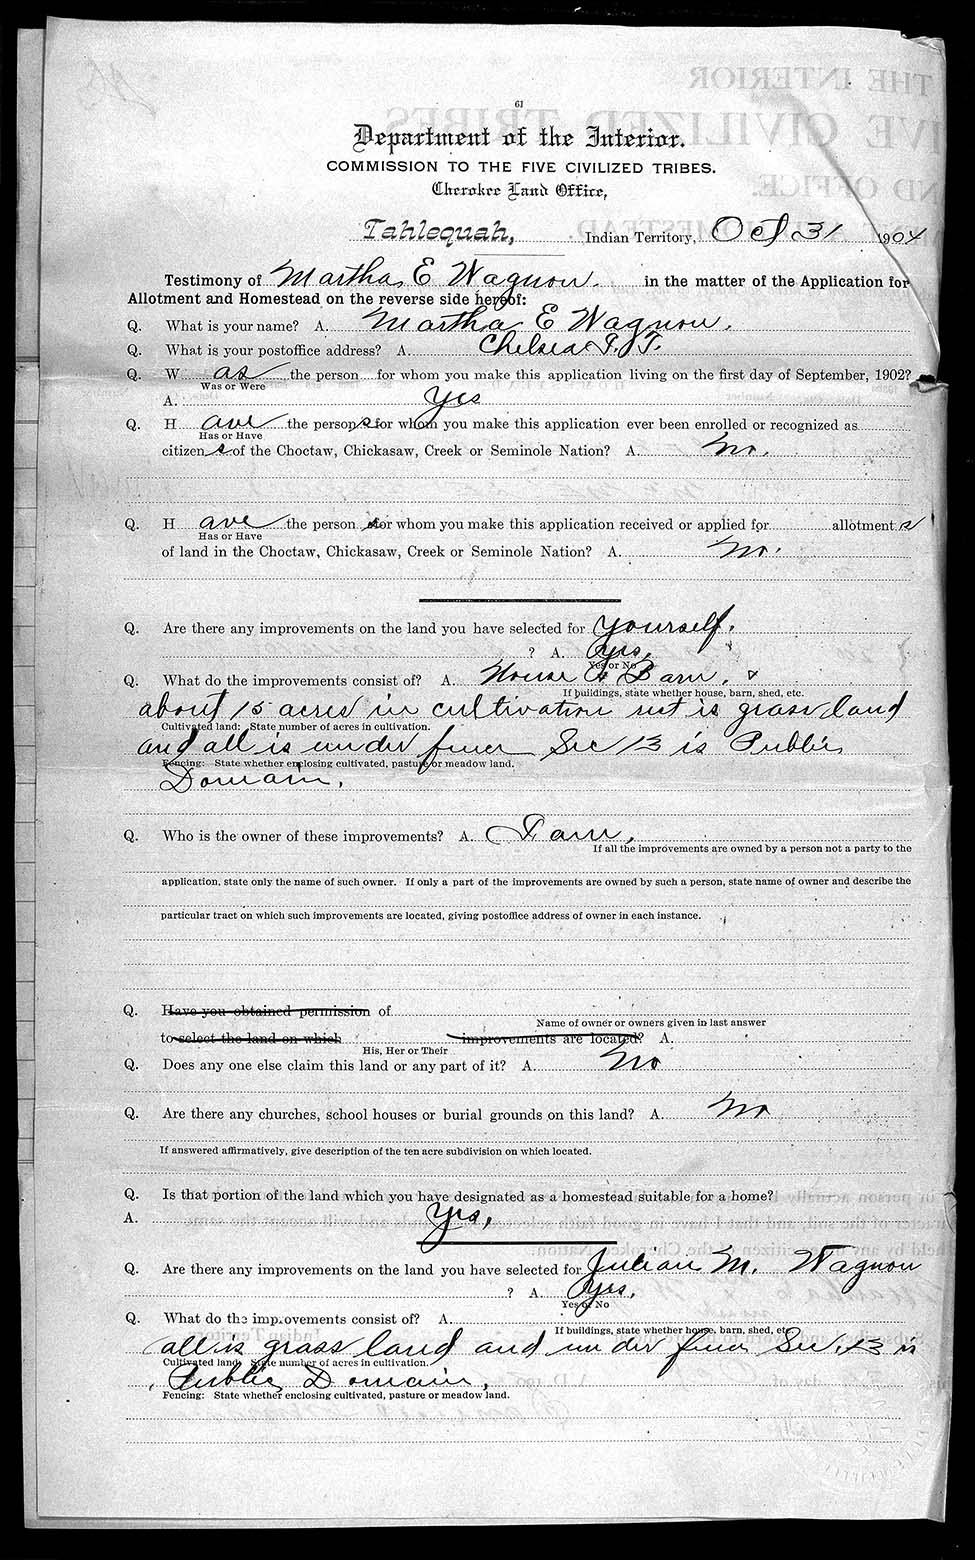 61
Department of the Interior.
COMMISSION TO THE FIVE CIVILIZED TRIBES.
Cherokee Land Office,
Tahlequah, Indian Territory, Oct 31 1904
Testimony of Martha E Wagnon. in the matter of the Application for
Allotment and Homestead on the reverse side hereof:
Q. What is your name? A. Martha E Wagnon.
Q. What is your postoffice address? A. Chelsea I. T.
Q. W as the person for whom you make this application living on the first day of September, 1902?
Was or Were
A. Yes
Q. H ave the person s for whom you make this application ever been enrolled or recognized as
Has or Have
citizen s of the Choctaw, Chickasaw, Creek or Seminole Nation? A. No.
Q. H ave the person s for whom you make this application received or applied for allotment s
Has or Have
of land in the Choctaw, Chickasaw, Creek or Seminole Nation? A. No.
Q. Are there any improvements on the land you have selected for yourself.
? A. Yes.
Yes or No
Q. What do the improvements consist of? A. House & Barn, &
If buildings, state whether house, barn, shed, etc.
about 15 acres in cultivation rest is grass land
Cultivated land: State number of acres in cultivation.
and all is under fence Sec 13 is Public
Fencing: State whether enclosing cultivated, pasture or meadow land.
Domain.
Q. Who is the owner of these improvements? A. I am,
If all the improvements are owned by a person not a party to the
application, state only the name of such owner. If only a part of the improvements are owned by such a person, state name of owner and describe the
particular tract on which such improvements are located, giving postoffice address of owner in each instance.
Q. Have you obtained permission of
Name of owner or owners given in last answer
to select the land on which improvements are located? A.
His, Her or Their
Q. Does any one else claim this land or any part of it? A. No
Q. Are there any churches, school houses or burial grounds on this land? A. No
If answered affirmatively, give description of the ten acre subdivision on which located.
Q. Is that portion of the land which you have designated as a homestead suitable for a home?
A. Yes,
Q. Are there any improvements on the land you have selected for Julian M. Wagnon
? A. Yes.
Yes or No
Q. What do the improvements consist of? A.
If buildings, state whether house, barn, shed, etc.
all is grass land and under fence Sec. 13 is
Cultivated land: State number of acres in cultivation.
Public Domain,
Fencing: State whether enclosing cultivated, pasture or meadow land.